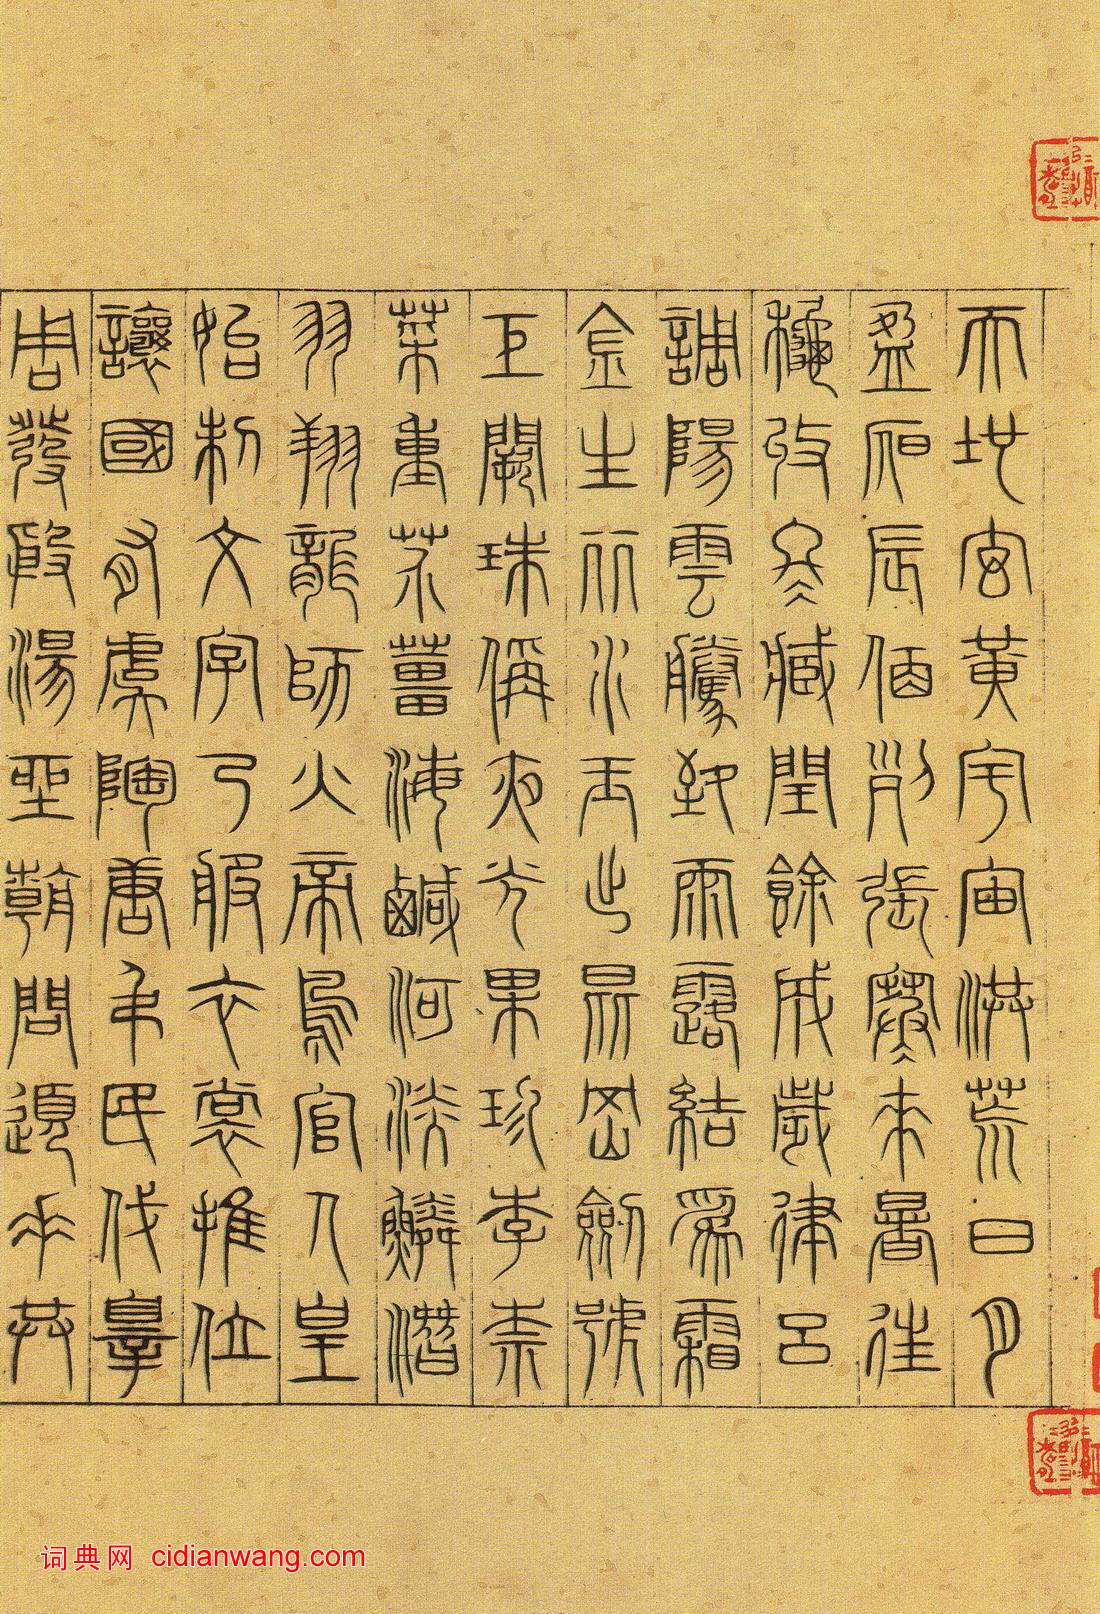 天地玄黃宇宙洪荒日月
盈昃辰宿列張寒來暑往
秋收冬藏閏餘成歲律呂
調陽雲騰致雨露結爲霜
金生麗水玉出昆岡劍號
巨闕珠稱夜光果珍李柰
菜重芥薑海鹹河淡鱗潛
羽翔龍師火帝鳥官人皇
始制文字乃服衣裳推位
讓國有虞陶唐弔民伐辠
周發殷湯坐朝問道垂拱
词典网 cidianwang.com